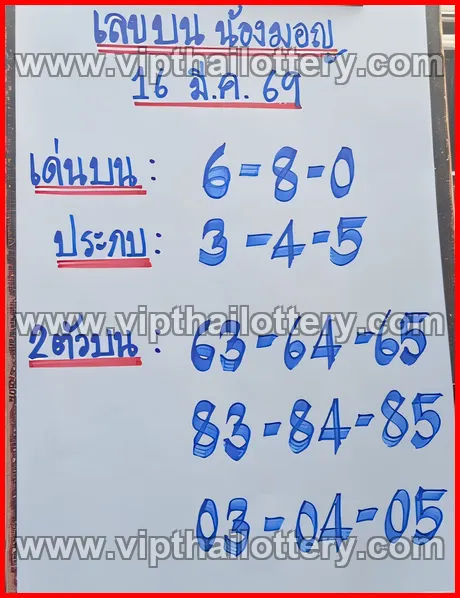 เลขบน น้องมอญ
www.vipthailottery.com
16 มี.ค. 69
เด่นบน : 6-8-0
www.vipthailottery.com
ประกบ : 3-4-5
www.vipthailottery.com
2ตัวบน : 63-64-65
83-84-85
03-04-05
www.vipthailottery.com